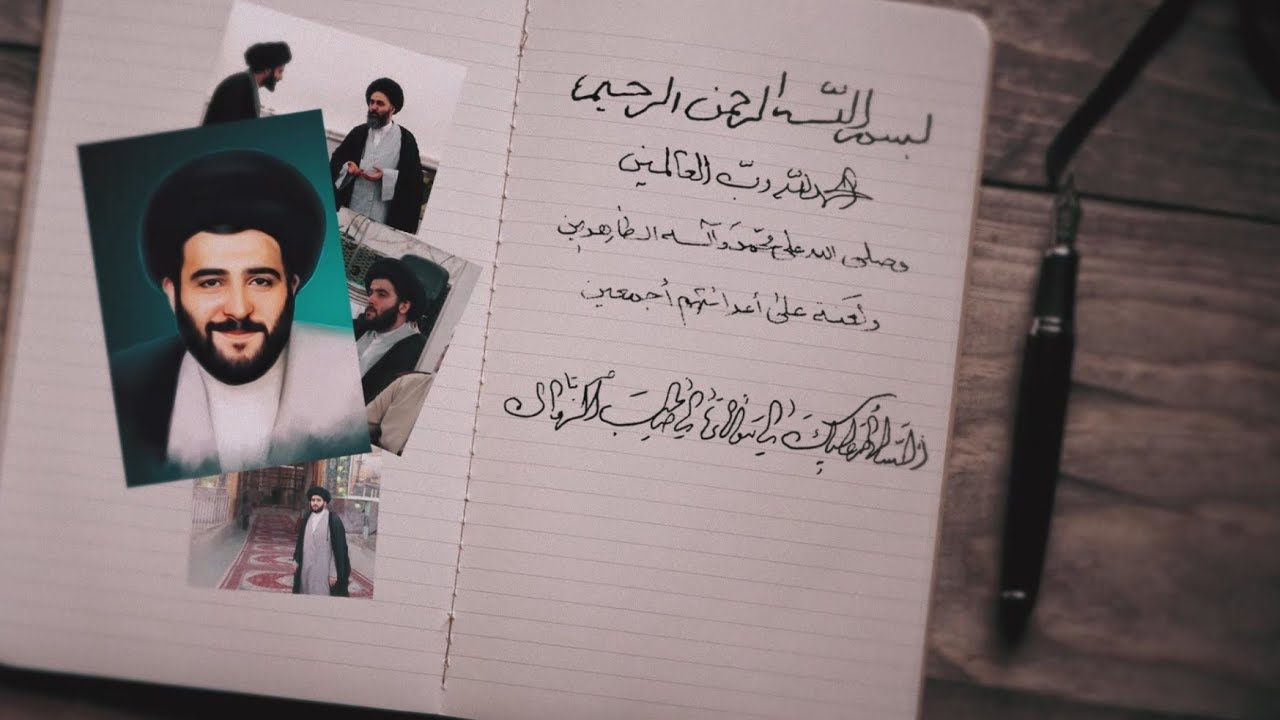 بسم الله الرحمن الرحيم
الحمد لله رب العالمين
وصلى الله على محمد وآله الطاهرين
ولعنة على أعدائهم أجمعين
السلام عليك يا مولاي يا صاحب الزمان